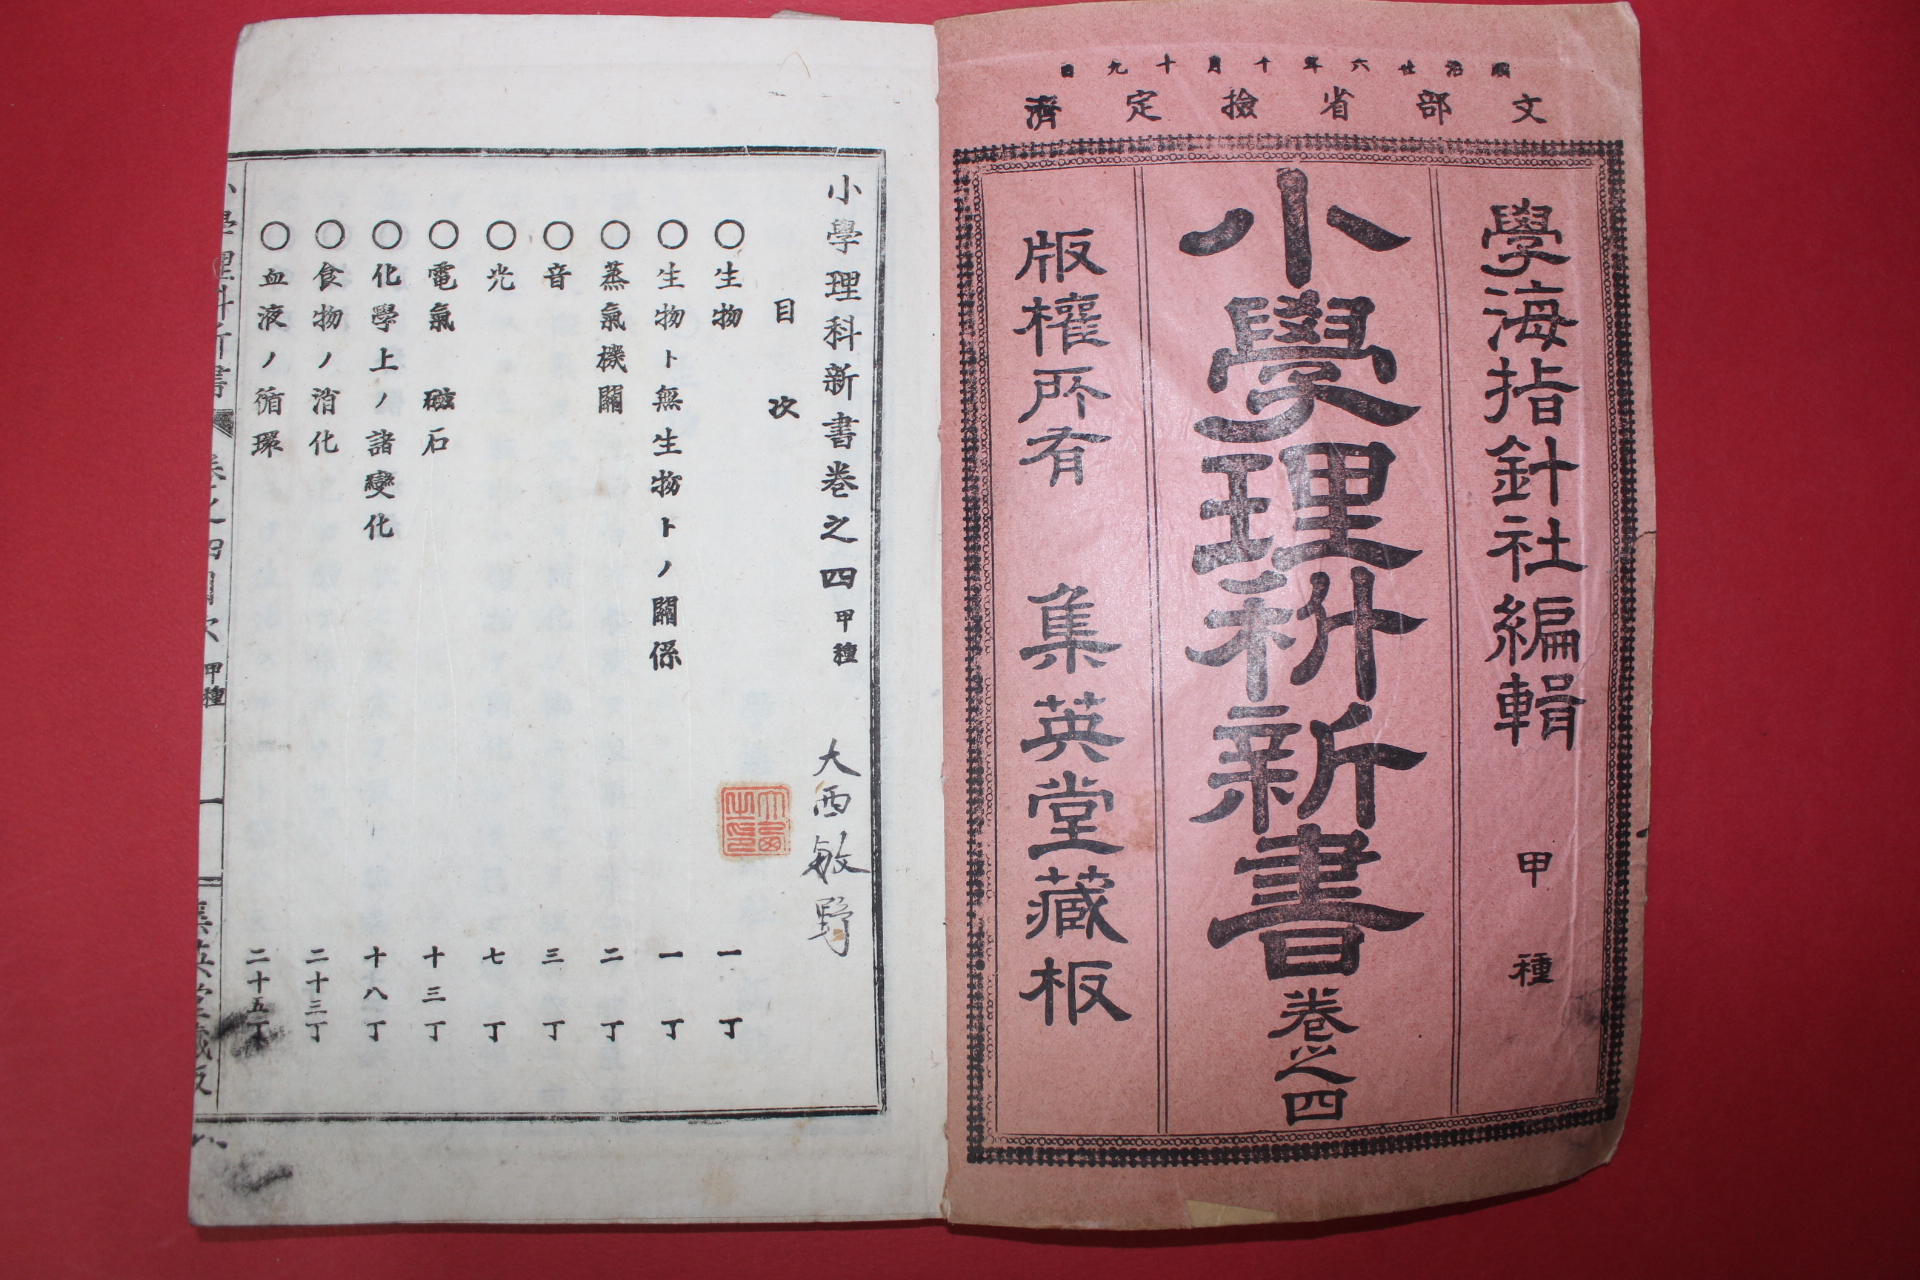 明治廿六年十月十九日
文部省檢定濟
學海指針社編輯 甲種
小學理科新書卷之四
版權所有 集英堂藏板
小學理科新書卷之四甲種 大西敏野
目次
○生物 一丁
○生物ト無生物トノ關係 一丁
○蒸氣機關 二丁
○音 三丁
○光 七丁
○電氣 磁石 十三丁
○化學上ノ諸變化 十八丁
○食物ノ消化 二十三丁
○血液ノ循環 二十五丁
小學理科新書 卷之四目次 甲種 一 集英堂藏版